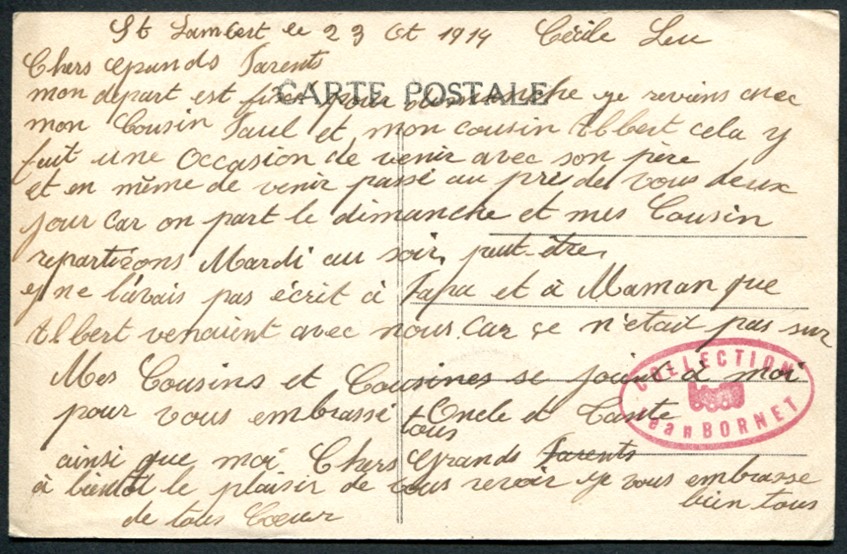 St Lambert le 23 Ot 1914 Cécile Leu
Chers Grands Parents
CARTE POSTALE
mon depart est fixé pour dimanche ge reviens avec
mon Cousin Paul et mon cousin Albert cela y
fait une Occasion de venir avec son père
et en même de venir passé au pré de vous deux
jour car on part le dimanche et mes Cousin
repartirons Mardi au soir, peut-être,
ge ne l'avais pas écrit à Papa et à Maman que
Albert venaient avec nous. Car ce n'etait pas sur
Mes Cousins et Cousines se joint à moi
pour vous embrassé Oncle et Tante
tous
ainsi que moi Chers Grands Parents
à bientôt le plaisir de vous revoir ge vous embrasse
bien tous
de tous Cœur
COLLECTION
Jean BORNET